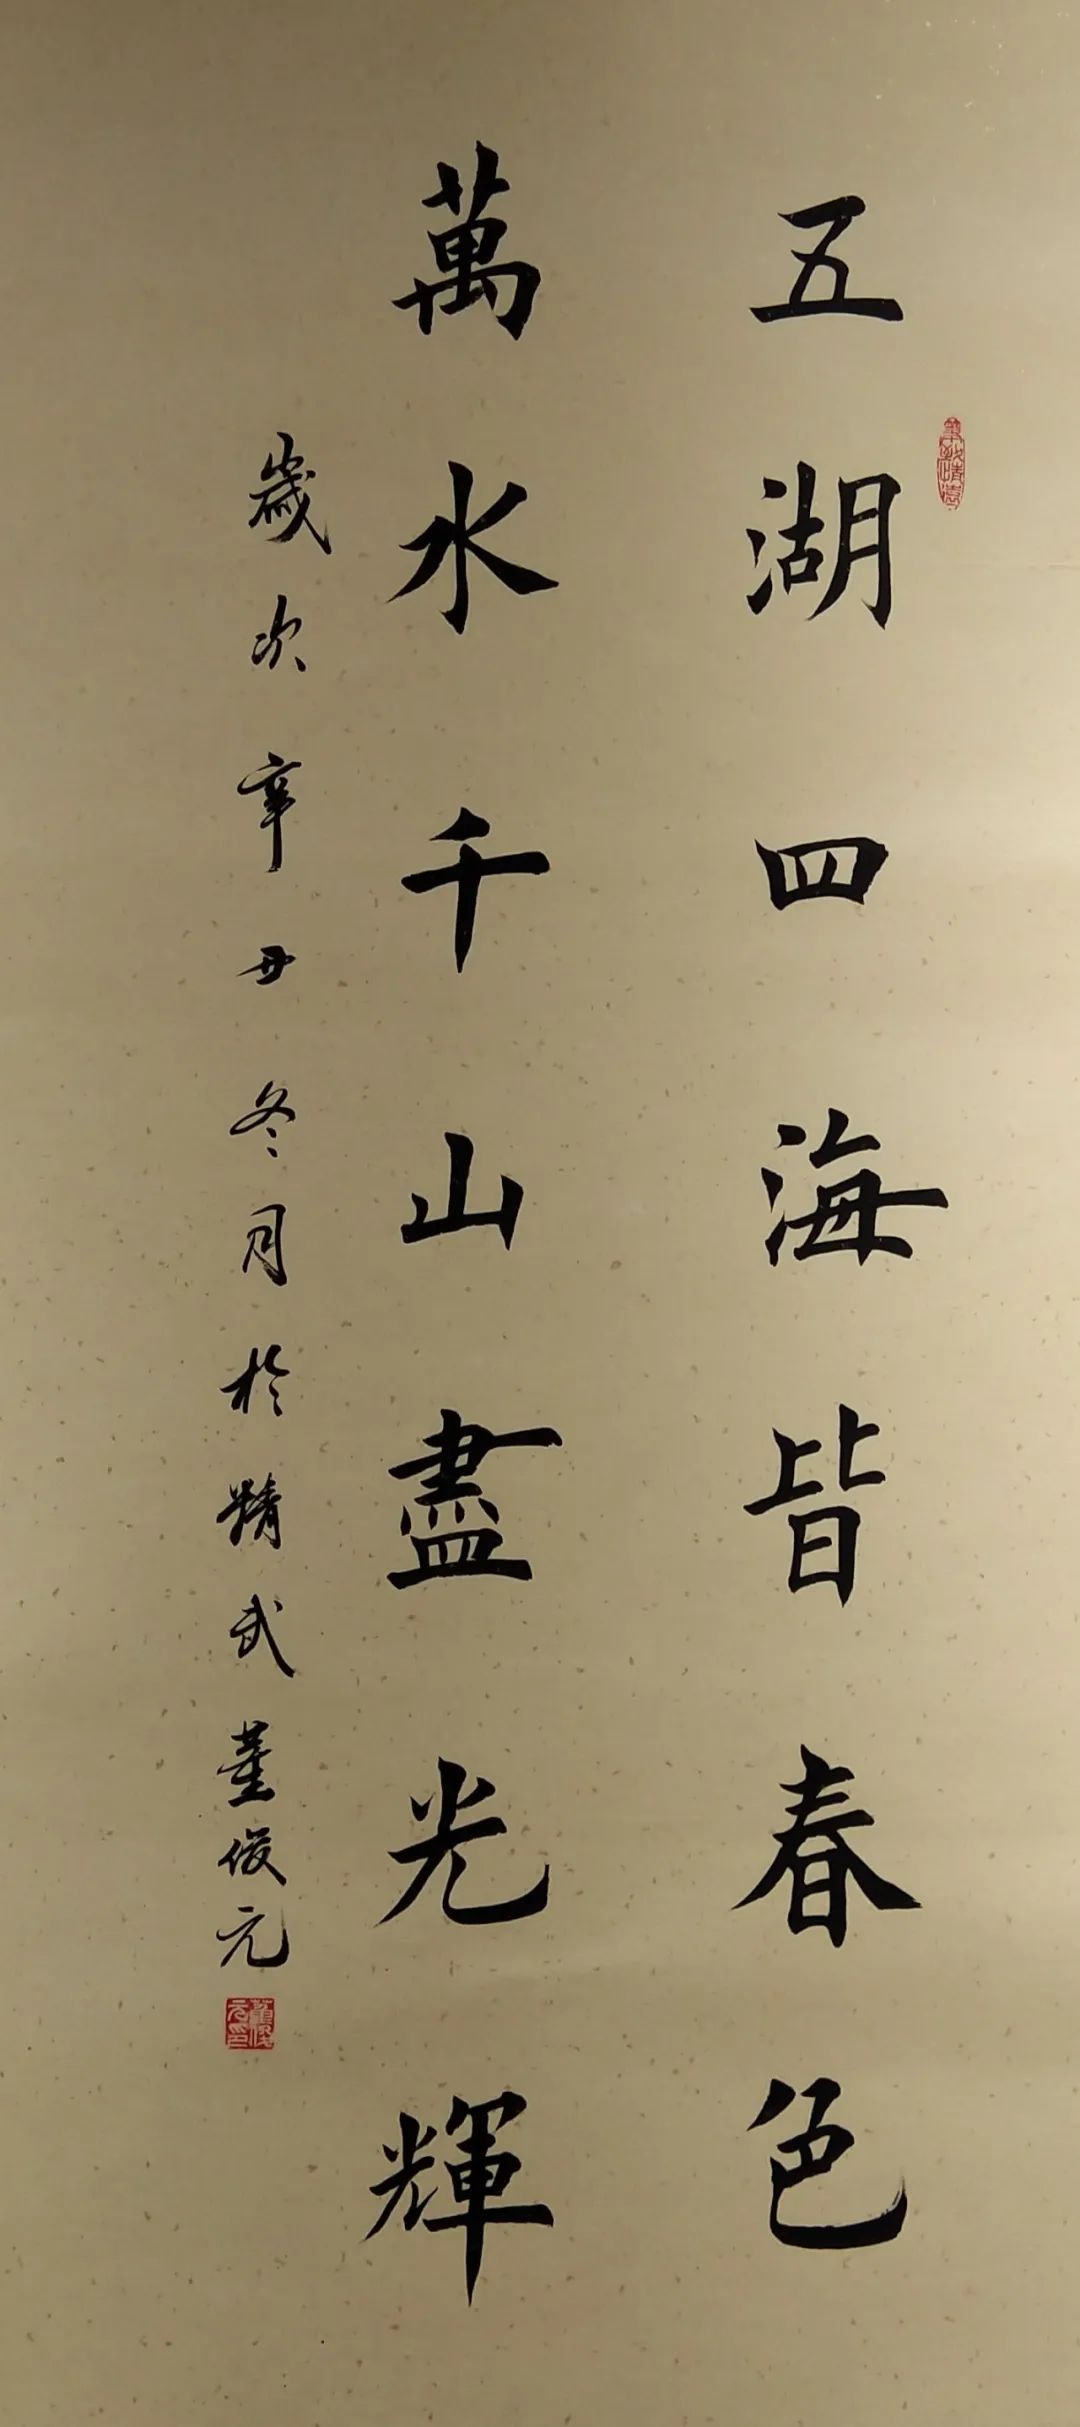 五湖四海皆春色
萬水千山盡光輝
歲次辛丑冬月於精武董俊元